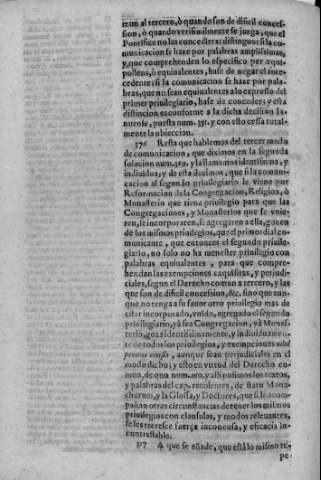 mun al tercero, ò quando son de dificil conces-
sion, ò quando verisimilmente se juzga, que el
Pontifice no las concediera: distinguo: si la co-
municacion se haze por palabras amplissimas,
y que comprehenden lo especifico per aqui-
polleus, ò equivalentes, hase de negar el inte-
cedente: si la comunicacion se haze por pala-
bras, que no sean equivalentes a lo expresso del
primer privilegiario, hase de conceder: y esta
distincion es conforme a la dicha decission la-
puesta num. 351. y con esto cessa total-
mente la obieccion.
376 Resta que hablemos del tercer modo
de comunicacion, que diximos en la segunda
solucion num. 369. y la llamamos identissima, y
individua, y de esta dezimos, que si la comuni-
cacion al segundo privilegiario le viene por
Reformacion de la Congregacion, Religion, ò
Monasterio que tiene privilegio para que las
Congregaciones, y Monasterios que se vnie-
ren, se incorporaren, se agregaren a ella, gozen
de los mismos privilegios, que el primordial co-
municante, que entonces el segundo privile-
giario, no solo no ha menester privilegio con
palabras equivalentes, para que compre-
hendan las exempciones exquisitas, y perjudi-
ciales, segun el Derecho comun a tercero, y las
que son de dificil concession, &c. sino que aun-
que no tenga a su favor otro privilegio mas de
estar incorporado, vnido, agregado el segundo
privilegiario, yà sea Congregacion, yà Monas-
terio, goza identissimamente, y individuamen-
te de todos los privilegios, y exempciones
aunque sean perjudiciales en el
modo dicho; y esto en virtud del Derecho co-
mun, de que num. y alli pusimos los textos,
y palabras del cap. recolentes, de statu Mona-
chorum, y la Glossa, y Doctores, que si le acom-
pañan otras circunstancias de tener los mismos
privilegios con clausulas, y modos relevantes,
se les acrece fuerça inconcusa, y eficacia in-
contrastable.
377 A que se añade, que està lo mismo re-
pe-